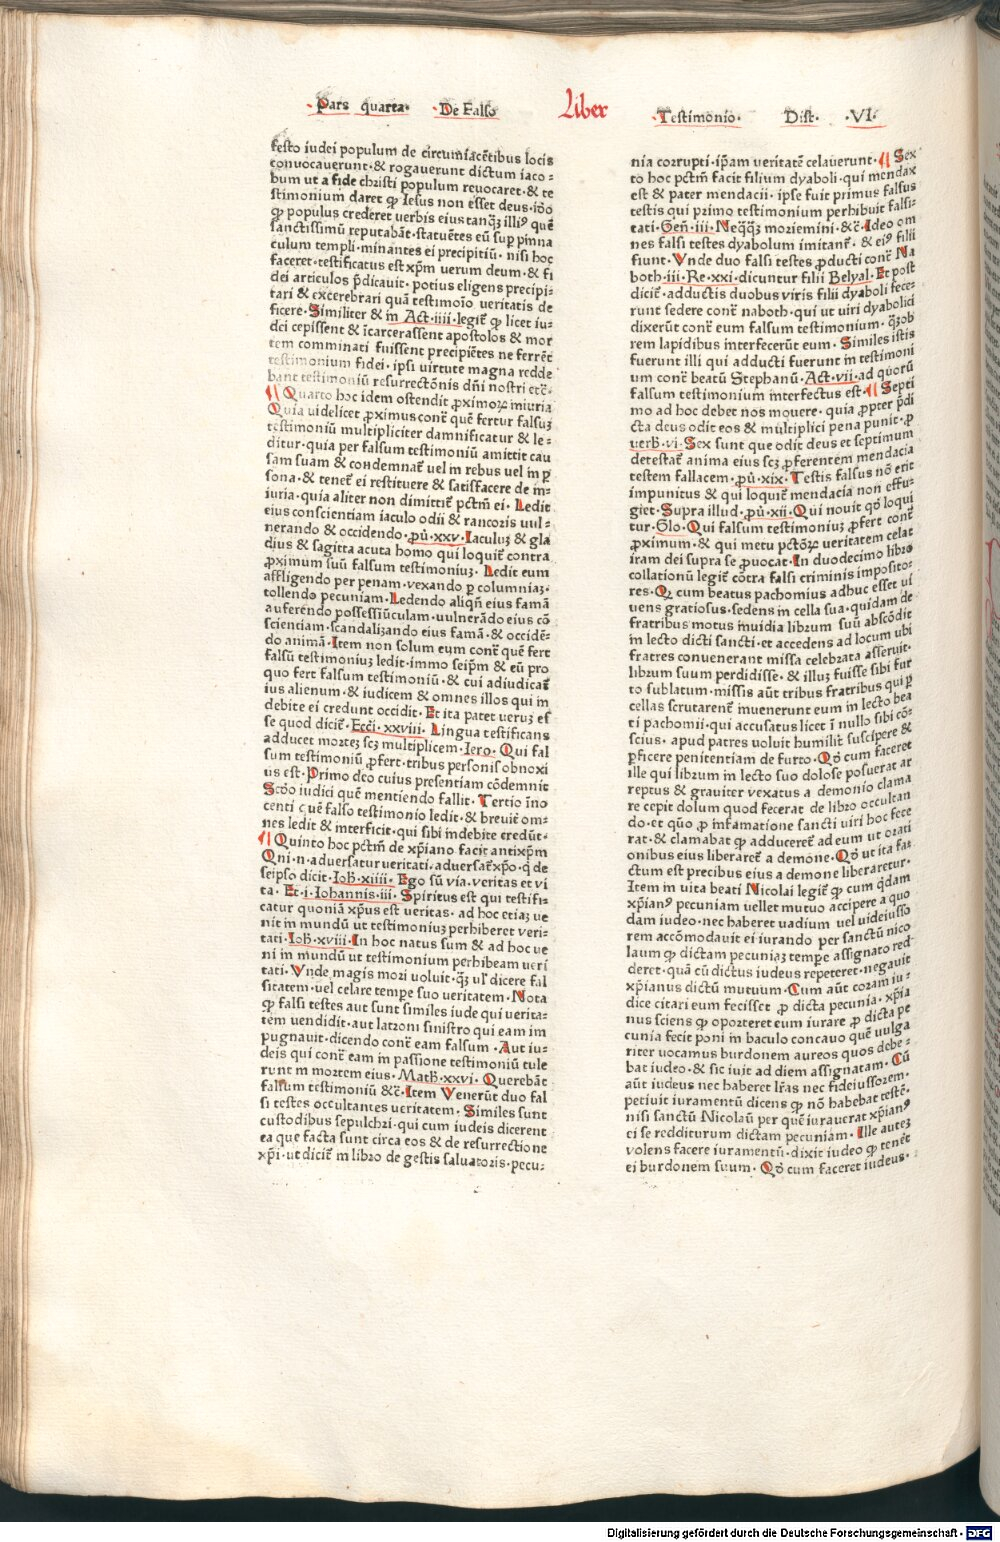 Pars quarta· De Falso Liber Testimonio· Dist· ·VI·
festo iudei populum de circumiacētibus locis
conuocauerunt·& rogauerunt dictum iaco-
bum ut a fide christi populum reuocaret·& te
stimonium daret ꝙ Iesus non esset deus·iđo
ꝙ populus crederet uerbis eius tanqȝ illi⁹ quē
sanctissimū reputabāt·statuētes eū suꝑ pinna
culum templi·minantes ei precipitiū· nisi hoc
faceret·testificatus est xp̄m uerum deum·& fi
dei articulos p̄dicauit· potius eligens precipi-
tari & excerebrari quā testimoīo ueritatis de
ficere·Similiter & in Act·iiii·legit̄ ꝙ licet iu-
dei cepissent & īcarcerassent apostolos & mor
tem comminati fuissent precipiētes ne ferrēt
testimonium fidei· ipsi uirtute magna redde
bant testimoniū resurrectōnis dn̄i nostri etc̄·
¶ Quarto hoc idem ostendit ꝓximoꝝ iniuria
Quia uidelicet ꝓximus cont̄ quē fertur falsuȝ
testimoniū multipliciter damnificatur & le-
ditur·quia per falsum testimoniū amittit cau
sam suam & condemnat̄ uel in rebus uel in ꝑ
sona·& tenet̄ ei restituere & satisfacere de in-
iuria·quia aliter non dimittit̄ pctm̄ ei· Ledit
eius conscientiam iaculo odii & rancoris uul-
nerando & occidendo·pu̇·xxv·Iaculuȝ & gla
dius & sagitta acuta homo qui loquit̄ contra
ꝓximum suū falsum testimoniuȝ· Ledit eum
affligendo per penam·vexando ꝑ columniaȝ·
tollendo pecuniam·Ledendo aliqn̄ eius famā
auferendo possessiūculam·uulnerādo eius cō
scientiam·scandalizando eius famā·& occidē-
do animā·Item non solum eum cont̄ quē fert
falsū testimoniuȝ ledit·immo seip̄m & eū pro
quo fert falsum testimoniū·& cui adiudicat̄
ius alienum·& iudicem & omnes illos qui in
debite ei credunt occidit· Et ita patet ueruȝ es
se quod dicit̄·Ecci·xxviii· Lingua testificans
adducet morteȝ scȝ multiplicem·Iero· Qui fal
sum testimoniū ꝓfert·tribus personis obnoxi
us est·Primo deo cuius presentiam cōdemnit
Scđo iudici quē mentiendo fallit· Tertio īno
centi quē falso testimonio ledit·& breuit̄ om-
nes ledit & interficit·qui sibi indebite credūt·
¶ Quinto hoc pctm̄ de xp̄iano facit antixp̄m
Qui·n·aduersatur ueritati·aduersat̄ xp̄o·q̇ de
seipso dicit·Ioħ·xiiii· Ego sū via·veritas et vi
ta· Et·i·Iohannis·iii· Spiritus est qui testifi-
catur quoniā xp̄us est veritas· ad hoc etiaȝ ue
nit in mundū ut testimoniuȝ perhiberet veri-
tati·Ioħ·xviii·In hoc natus sum & ad hoc ue
ni in mundū ut testimonium perhibeam ueri
tati· Vnde magis mori voluit·qȝ ul̄ dicere fal
sitatem·uel celare tempe suo ueritatem·Nota
ꝙ falsi testes aut sunt similes iude qui uerita-
tem uendidit·aut latroni sinistro qui eam im
pugnauit·dicendo cont̄ eam falsum ·Aut iu-
deis qui cont̄ eam in passione testimoniū tule
runt in mortem eius· Matħ·xxvi· Querebāt
falsum testimoniū &c̄·Item Venerūt duo fal
si testes occultantes ueritatem· Similes sunt
custodibus sepulchri·qui cum iudeis dicerent
ea que facta sunt circa eos & de resurrectione
xp̄i·ut dicit̄ in libro de gestis saluatoris·pecu-
nia corrupti·ip̄am ueritatē celauerunt·¶ Sex
to hoc pctm̄ facit filium dyaboli·qui mendax
est & pater mendacii· ipse fuit primus falsus
testis qui primo testimonium perhibuit falsi-
tati· Gen̄·iii· Neqqȝ moriemini·&c̄·Ideo om
nes falsi testes dyabolum imitant̄· & ei⁹ filii
fiunt· Vnde duo falsi testes ꝓducti cont̄ Na
both·iii·Re·xxi·dicuntur filii Belyal· Et post
dicit̄·adductis duobus viris filii dyaboli fece-
runt sedere cont̄ naboth·qui ut uiri dyabolici
dixerūt cont̄ eum falsum testimonium· qȝob
rem lapidibus interfecerūt eum· Similes istis
fuerunt illi qui adducti fuerunt in testimoni
um cont̄ beatū Stephanū·Act·vii·ad quorū
falsum testimonium interfectus est·¶ Septi
mo ad hoc debet nos mouere· quia ꝓpter p̄di
cta deus odit eos & multiplici pena punit·ꝓ
uerb̄·vi·Sex sunt que odit deus et septimum
detestat̄ anima eius scȝ ꝓferentem mendacia
testem fallacem·pu̇·xix· Testis falsus nō erit
impunitus & qui loquit̄ mendacia non effu-
giet·Supra illud·pu̇·xii·Qui nouit qđ loqui
tur·Glo·Qui falsum testimoniuȝ ꝓfert cont̄
ꝓximum·& qui metu pctōꝝ ueritatem celat
iram dei supra se ꝓuocat·In duodecimo libro
collationū legit̄ cōtra falsi criminis imposito-
res· Qꝫ cum beatus pachomius adhuc esset ui
uens gratiosus·sedens in cella sua·quidam de
fratribus motus inuidia librum suū abscōdit
in lecto dicti sancti·et accedens ad locum ubi
fratres conuenerant missa celebrata asseruit·
librum suum perdidisse·& illuȝ fuisse sibi fur
to sublatum·missis aūt tribus fratribus qui ꝑ
cellas scrutarent̄ inuenerunt eum in lecto bea
ti pachomii·qui accusatus licet ī nullo sibi cō-
scius· apud patres uoluit humilit̄ suscipere &
ꝑficere penitentiam de furto·Qđ cum faceret
ille qui librum in lecto suo dolose posuerat ar
reptus & grauiter vexatus a demonio clama
re cepit dolum quod fecerat de libro occultan
do·et quō ꝓ infamatione sancti uiri hoc fece
rat·& clamabat ꝙ adducerēt ad eum ut orati
onibus eius liberaret̄ a demone·Qđ ut ita fa-
ctum est precibus eius a demone liberaretur·
Item in vita beati Nicolai legit̄ ꝙ cum qdam
xp̄ian⁹ pecuniam uellet mutuo accipere a quo
dam iudeo·nec haberet uadium uel uideiusso
rem accōmodauit ei iurando per sanctū nico
laum ꝙ dictam pecuniaȝ tempe assignato red-
deret·quā cū dictus iudeus repeteret·negauit
xp̄ianus dictū mutuum·Cum aūt coram iu-
dice citari eum fecisset ꝓ dicta pecunia·xp̄ia
nus sciens ꝙ oporteret eum iurare ꝓ dicta pe
cunia fecit poni in baculo concauo quē uulga
riter uocamus burdonem aureos quos debe-
bat iudeo·& sic iuit ad diem assignatam·Cū
aūt iudeus nec haberet lr̄as nec fideiussorem·
petiuit iuramentū dicens ꝙ nō habebat testē·
nisi sanctū Nicolaū per quē iurauerat xp̄ian⁹
ei se redditurum dictam pecuniam· Ille auteȝ
volens facere iuramentū·dixit iudeo ꝙ tenet̄
ei burdonem suum· Qđ cum faceret iudeus·
Digitalisierung gefördert durch die Deutsche Forschungsgemeinschaft · DFG